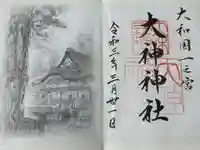 大和國一之宮
大神神社
令和三年三月廿一日